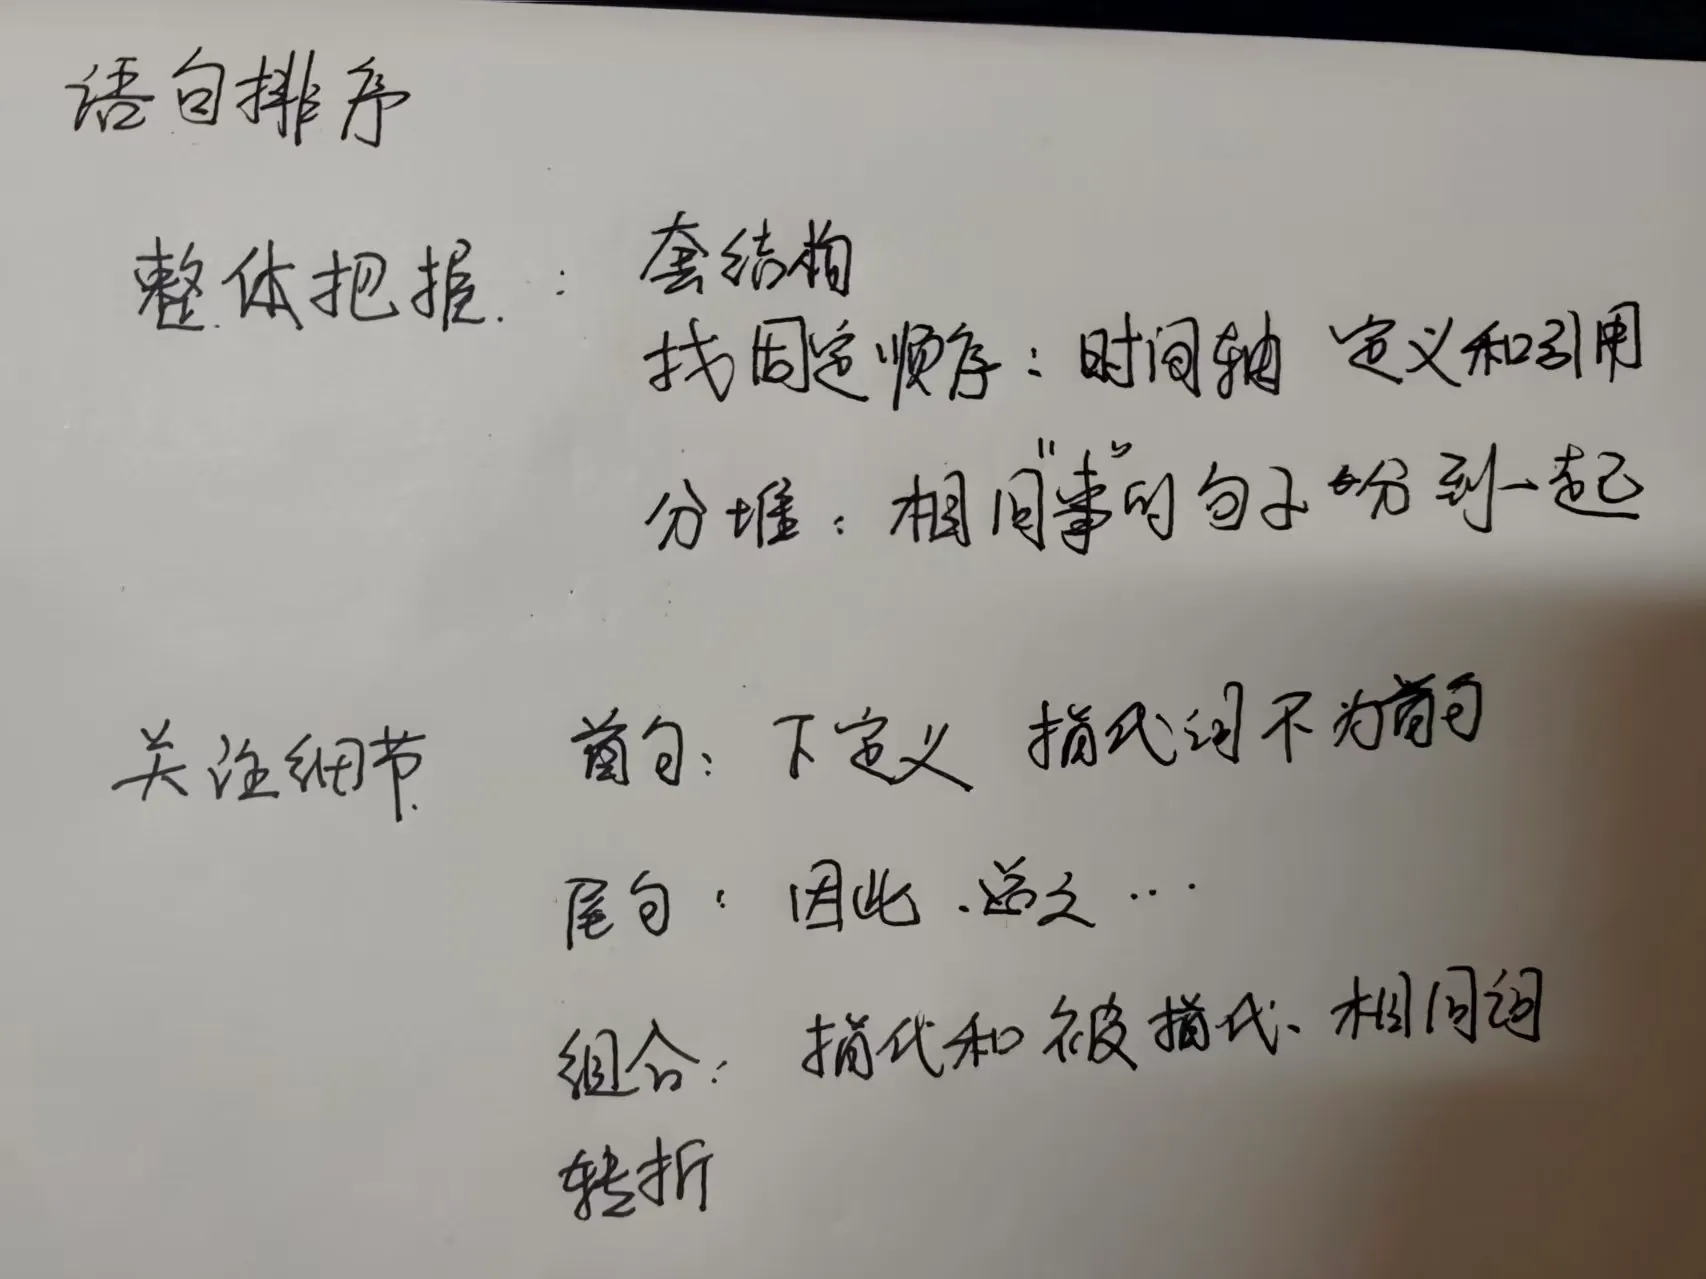 语句排序
整体把握：套结构
找固定顺序：时间轴 定义和引用
分堆：相同"事"的句子分到一起
关注细节 首句：下定义 指代词不为首句
尾句：因此、总之…
组合：指代和被指代、相同词
转折